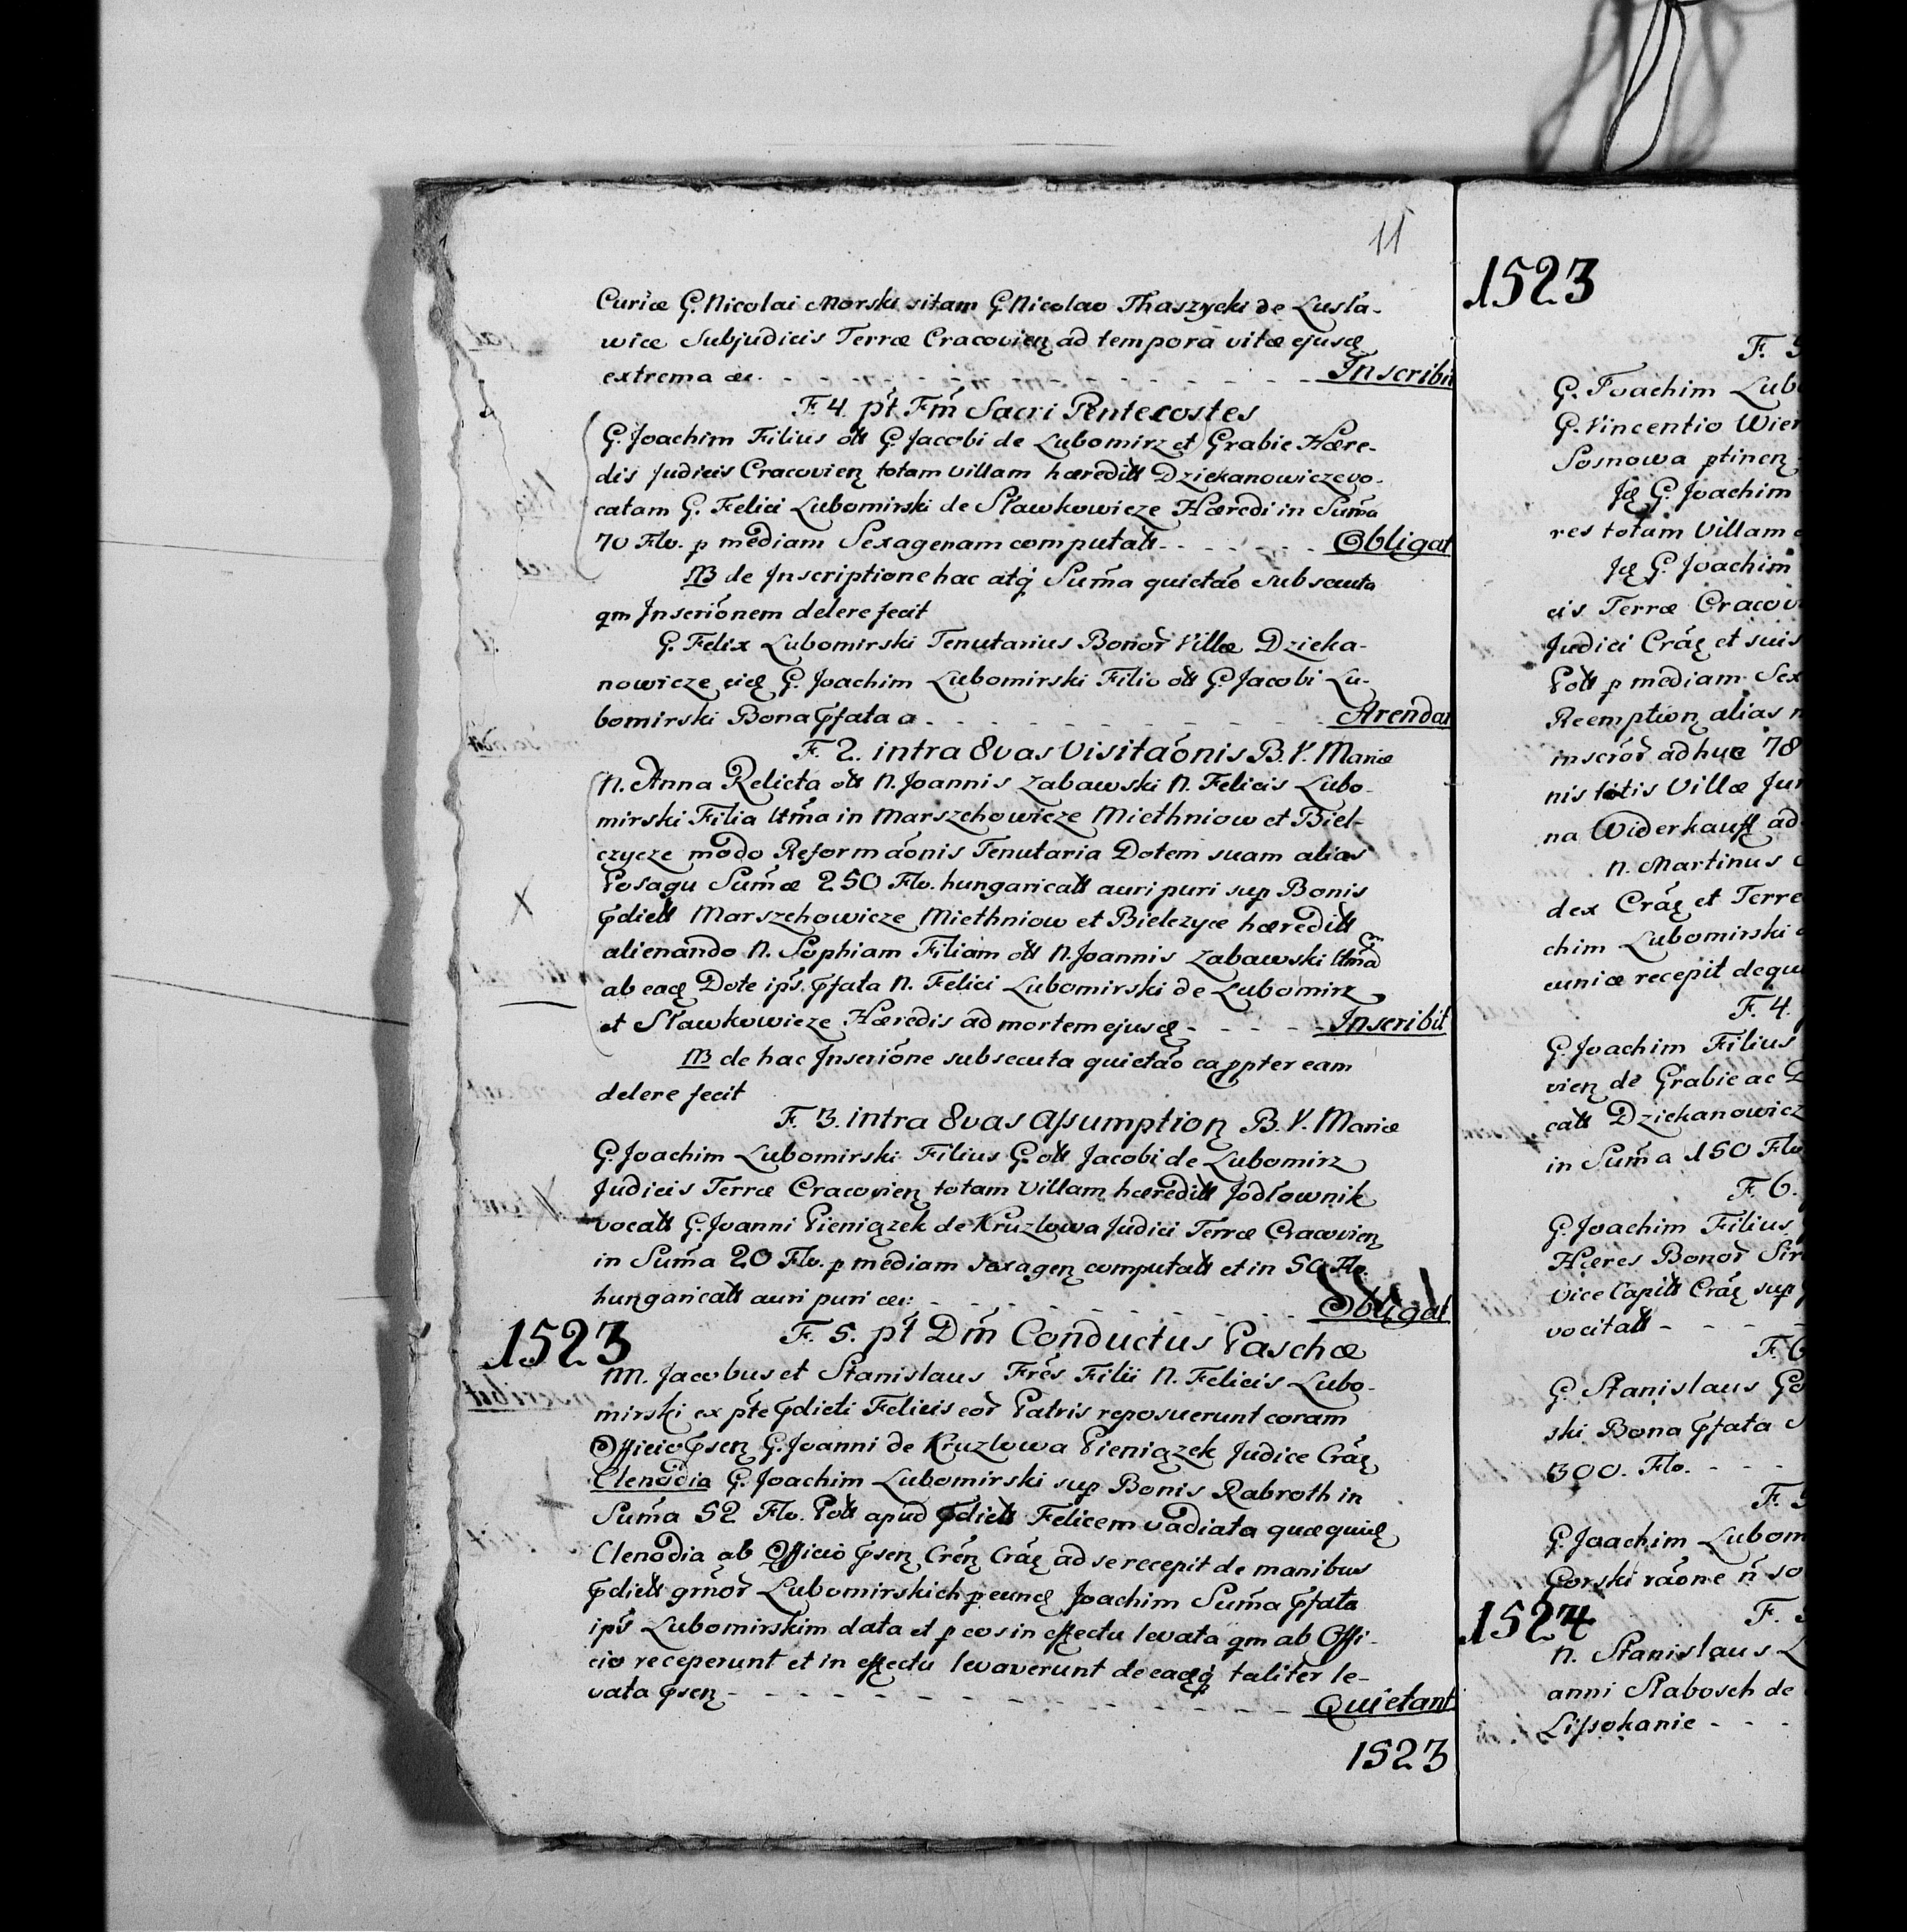 11
Curiæ G. Nicolai Morski sitam G. Nicolao Thaszycki de Lusla-
wice Subjudicis Terræ Cracovien ad tempora vitæ ejusq
extrema &c. - - - - - - - - - - - Inscribit
F. 4. pt Fm Sacri Pentecostes
G. Joachim Filius olt G. Jacobi de Lubomirz et Grabie Hære-
dis Judicis Cracovien totam villam hæredits Dziekanowicze vo-
catam G. Felici Lubomirski de Sławkowicze Hæredi in Suma
70 Flo. p mediam Sexagenam computats - - - - - - Obligat
NB de Inscriptione hac atq Suma quietao subsecuta
qm Inscrionem delere fecit
G. Felix Lubomirski Tenutarius Bonor Villæ Dzieka-
nowicze eid G. Joachim Lubomirski Filio olt G. Jacobi Lu-
bomirski Bona pfata a - - - - - - - - - - - Arendat
F. 2. intra 8vas Visitaonis B. V. Mariæ
N. Anna Relicta olt N. Joannis Zabawski N. Felicis Lubo-
mirski Filia ltma in Marszchowicze Miethniow et Biel-
czycze modo Reformaonis Tenutaria Dotem suam alias
Posagu Sumæ 250 Flo. hungaricals auri puri sup Bonis
pdicts Marszchowicze Miethniow et Bielczyce hæredits
alienando N. Sophiam Filiam olt N. Joannis Zabawski ltmam
ab ead Dote ips. pfata N. Felici Lubomirski de Lubomirz
et Sławkowicze Hæredis ad mortem ejusq - - - - - Inscribit
NB de hac Inscrione subsecuta quietao ea ppter eam
delere fecit
F. 3. intra 8vas Assumption B. V. Mariæ
G. Joachim Lubomirski Filius G. olt Jacobi de Lubomirz
Judicis Terræ Cracovien totam Villam hæredits Jodłownik
vocats G. Joanni Pieniązek de Kruzlowa Judici Terræ Cracovien
in Suma 20 Flo. p mediam sexagen computats et in 50 Flo.
hungaricals auri puri &c: - - - - - - - - - - - Obligat
1523 F. 5. pt Dm Conductus Paschæ
NN. Jacobus et Stanislaus Fres Filii N. Felicis Lubo-
mirski ex pte pdicti Felicis eor Patris reposuerunt coram
Officio psen G. Joanni de Kruzlowa Pieniązek Judice Crac
Clenodia G. Joachim Lubomirski sup Bonis Rabroth in
Suma 52 Flo. Pols apud pdicts Felicem vadiata quæ quid
Clenodia ab Officio psen Cren Crac ad se recepit de manibus
pdicts gnor Lubomirskich p eund Joachim Suma pfata
ips Lubomirskim data et p eos in effectu levata qm ab Offi-
cio receperunt et in effectu levaverunt de eadq taliter le-
vata psen - - - - - - - - - - - - - - - Quietant
1523
1523
F. 3
G. Joachim Lub
G. Vincentio Wier
Sosnowa ptinen
Id G. Joachim
res totam Villam
Id G. Joachim
cis Terræ Cracov
Judici Crac et suis
Pols p mediam Sex
Reemption alias
inscror adhuc 78
nis totis Villæ Jur
na Widerkauff ad
N. Martinus
dex Crac et Terre
chim Lubomirski
cuniæ recepit dequ
F. 4.
G. Joachim Filius
vien de Grabie ac
cats Dziekanowicz
in Suma 150 Flo
F. 6.
G. Joachim Filius
Hæres Bonor Sir
Vice Capits Crac sup
vocitats - - - -
F. 6
G. Stanislaus Go
ski Bona pfata
300. Flo. - - -
F.
G. Joachim Lubom
Gorski raone n so
1524 F.
N. Stanislaus L
anni Slabosch de
Lissokanie - - -